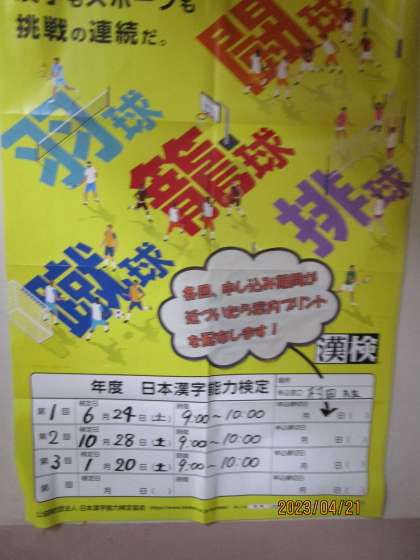 漢字もスポーツも
挑戦の連続だ。
闘球
羽球
籠球
排球
蹴球
各回、申し込み期間が
近づいたら案内プリント
を配布します！
漢検
年度 日本漢字能力検定
第1回 検定日 6月24日(土) 時間 9:00〜10:00 申込締切日 月 日( )
第2回 検定日 10月28日(土) 時間 9:00〜10:00 申込締切日 月 日( )
第3回 検定日 1月20日(土) 時間 9:00〜10:00 申込締切日 月 日( )
第 回 検定日 月 日( ) 時間 申込締切日 月 日( )
公益財団法人 日本漢字能力検定協会
2023/04/21